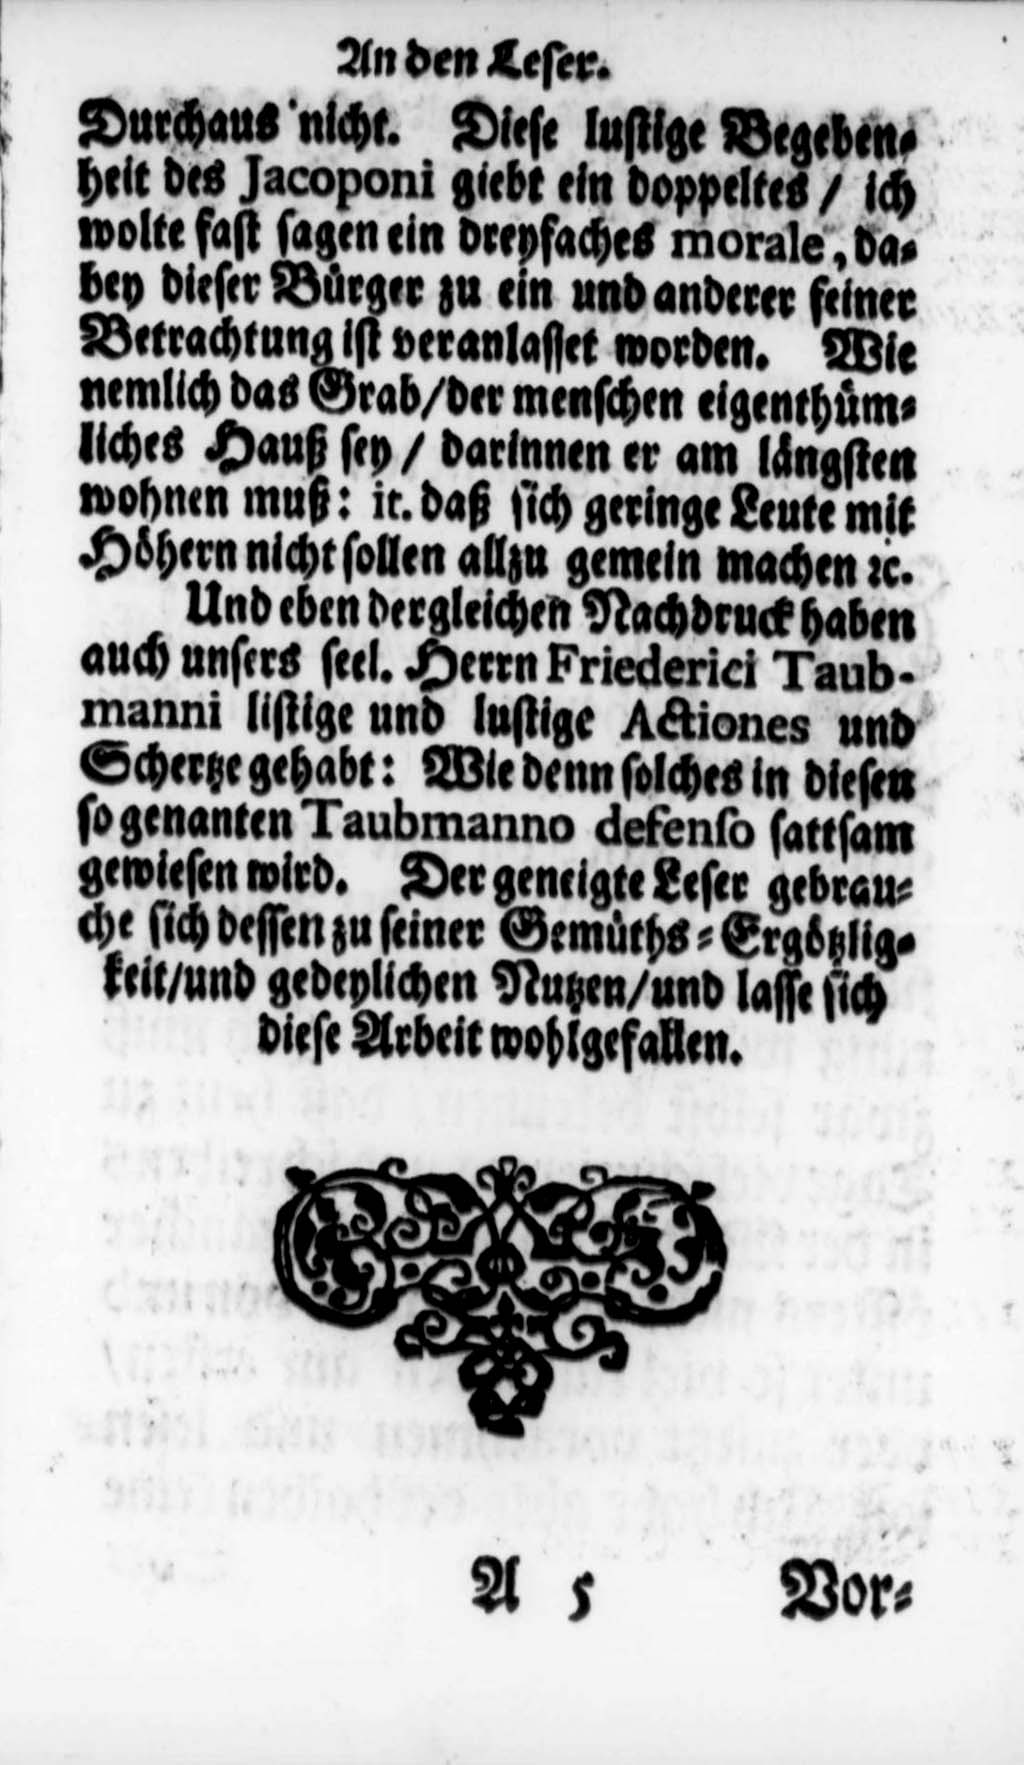 An den Leser.
Durchaus nicht. Diese lustige Begeben-
heit des Jacoponi giebt ein doppeltes / ich
wolte fast sagen ein dreyfaches morale, da-
bey dieser Bürger zu ein und anderer seiner
Betrachtung ist veranlasset worden. Wie
nemlich das Grab/der menschen eigenthüm-
liches Hauß sey / darinnen er am längsten
wohnen muß: it. daß sich geringe Leute mit
Höhern nicht sollen allzu gemein machen ꝛc.
Und eben dergleichen Nachdruck haben
auch unsers seel. Herrn Friederici Taub-
manni listige und lustige Actiones und
Schertze gehabt: Wie denn solches in diesen
so genanten Taubmanno defenso sattsam
gewiesen wird. Der geneigte Leser gebrau-
che sich dessen zu seiner Gemüths-Ergötzlig-
keit/und gedeylichen Nutzen/und lasse sich
diese Arbeit wohlgefallen.
A 5 Vor-